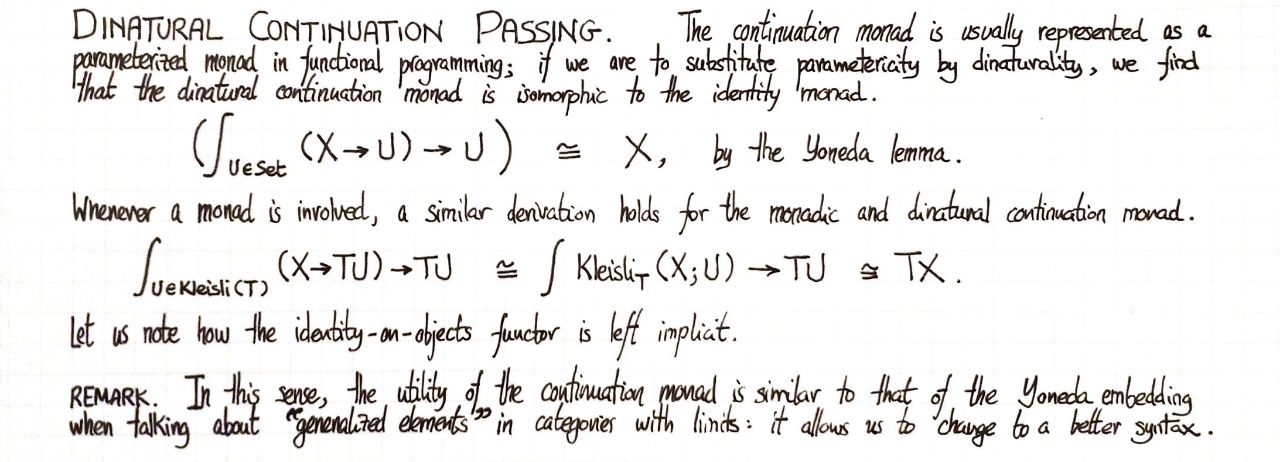 DINATURAL CONTINUATION PASSING. The continuation monad is usually represented as a
parameterized monad in functional programming; if we are to substitute parametericity by dinaturality, we find
that the dinatural continuation monad is isomorphic to the identity monad.
(∫_{U∈Set} (X→U)→U) ≅ X, by the Yoneda lemma.
Whenever a monad is involved, a similar derivation holds for the monadic and dinatural continuation monad.
∫_{U∈Kleisli(T)} (X→TU)→TU ≅ ∫ Kleisli_T(X;U)→TU ≅ TX.
Let us note how the identity-on-objects functor is left implicit.
REMARK. In this sense, the utility of the continuation monad is similar to that of the Yoneda embedding
when talking about "generalized elements" in categories with limits: it allows us to change to a better syntax.